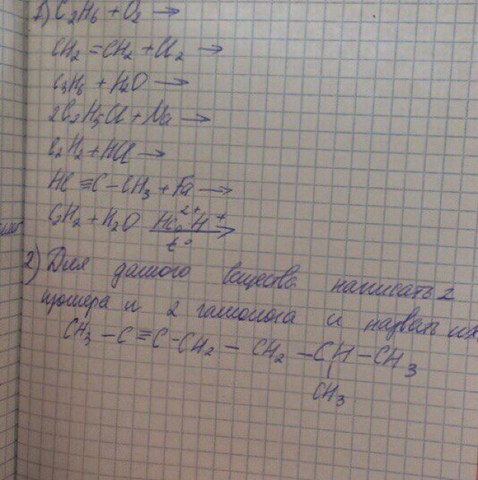 1) C2H6 + O2 →
CH2 = CH2 + Cl2 →
C3H6 + H2O →
2C2H5Cl + Na →
C2H2 + HCl →
HC ≡ C – CH3 + Fa →
C2H2 + H2O Hg2+ H+ t° →
2) Для данного вещества написать 2
изомера и 2 гамолога и назвать их
CH3 – C ≡ C – CH2 – CH2 – CH – CH3
CH3